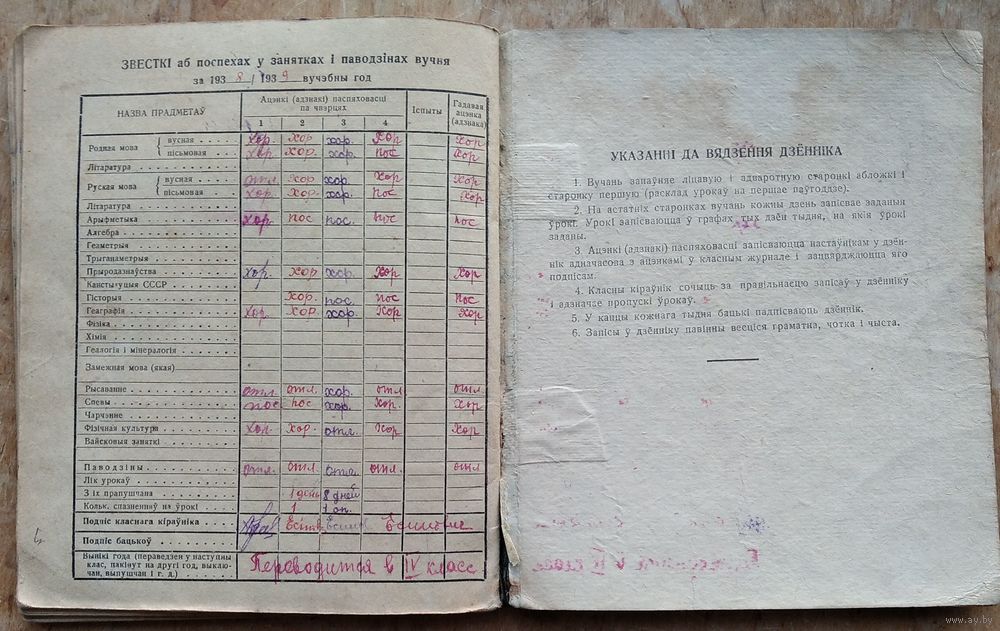 ЗВЕСТКІ аб поспехах у занятках і паводзінах вучня
за 193 8 / 193 9 вучэбны год
НАЗВА ПРАДМЕТАЎ
Ацэнкі (адзнакі) паспяховасці па чвэрцях
Іспыты
Гадавая ацэнка (адзнака)
1 2 3 4
Родная мова
вусная хор. хор хор. хор хор
пісьмовая хор. хор. хор. пос хор
Літаратура
Руская мова
вусная отл. хор хор. хор хор
пісьмовая хор. хор. хор. пос хор
Літаратура
Арыфметыка хор пос пос. пос пос
Алгебра
Геаметрыя
Трыганаметрыя
Прыродазнаўства хор. хор хор. хор хор
Канстытуцыя СССР
Гісторыя хор. пос. пос пос
Геаграфія хор. хор хор. хор хор
Фізіка
Хімія
Геалогія і мінералогія
Замежная мова (якая)
Рысаванне отл. отл. хор. отл. отл
Спевы пос пос хор. хор. хор
Чарчэнне
Фізічная культура хор. хор. отл. хор хор
Вайсковыя заняткі
Паводзіны отл. отл. отл. отл. отл
Лік урокаў
З іх прапушчана 1 день 8 дней
Кольк. спазненняў на ўрокі 1 1 оп.
Подпіс класнага кіраўніка
Подпіс бацькоў
Вынікі года (пераведзен у наступны
клас, пакінут на другі год, выклю-
чан, выпушчан і г. д.)
Переводится в IV класс
УКАЗАННІ ДА ВЯДЗЕННЯ ДЗЁННІКА
1. Вучань запаўняе ліцавую і адваротную старонкі абложкі і
старонку першую (расклад урокаў на першае паўгоддзе).
2. На астатніх старонках вучань кожны дзень запісвае заданыя
ўрокі. Урокі запісваюцца ў графах тых дзён тыдня, на якія ўрокі
заданы.
3. Ацэнкі (адзнакі) паспяховасці запісваюцца настаўнікам у дзён-
нік адначасова з ацэнкамі ў класным журнале і зацвярджаюцца яго
подпісам.
4. Класны кіраўнік сочыць за правільнасцю запісаў у дзённіку
і адзначае пропускі ўрокаў.
5. У канцы кожнага тыдня бацькі падпісваюць дзённік.
6. Запісы ў дзённіку павінны весціся граматна, чотка і чыста.
www.ay.by